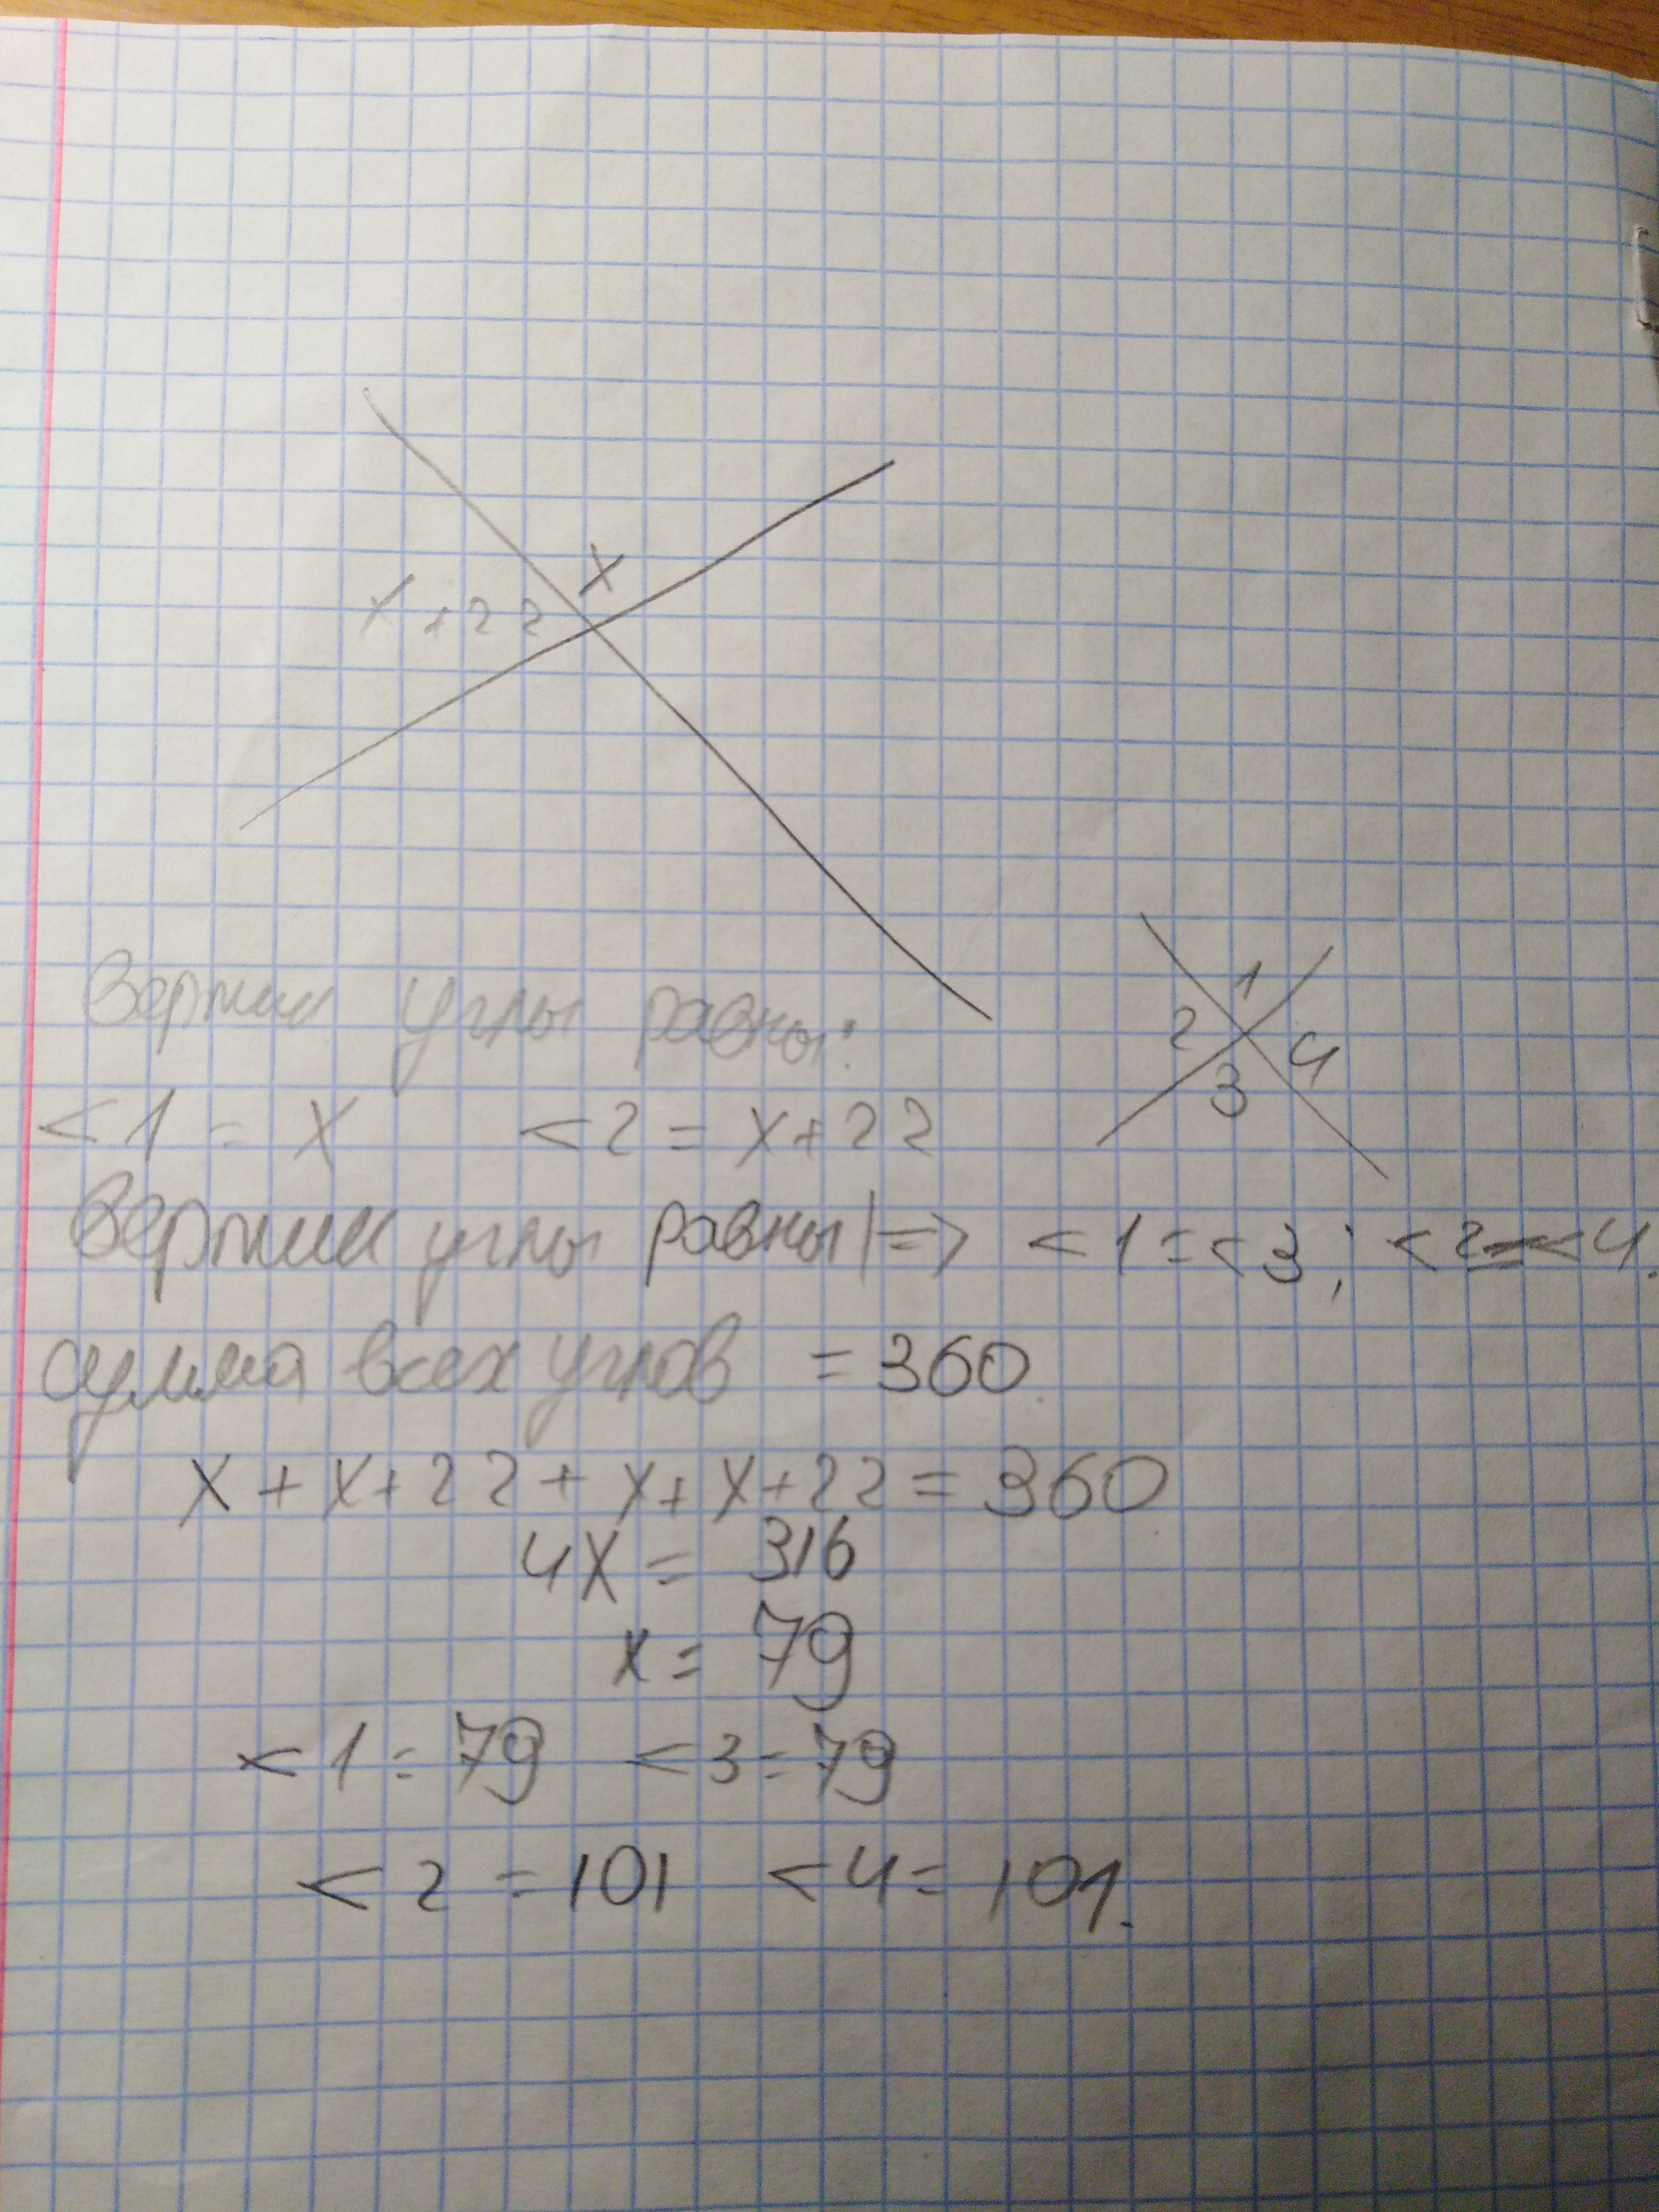 x
x+22
1
2
4
3
Вертик углы равны:
<1 = x <2 = x+22
Вертик углы равны |=> <1=<3; <2=<4.
сумма всех углов = 360.
x + x+22 + x+x+22 = 360
4x = 316
x = 79
<1=79 <3=79
<2=101 <4=101.